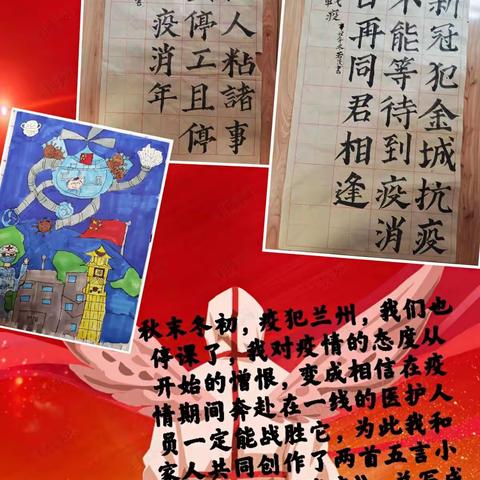 人粘諸事
停工且停
疫消年
新冠犯金城抗疫
不能等待到疫消
再同君相逢
秋末冬初，疫犯兰州，我们也
停课了，我对疫情的态度从
开始的憎恨，变成相信在疫
情期间奔赴在一线的医护人
员一定能战胜它，为此我和
家人共同创作了两首五言小